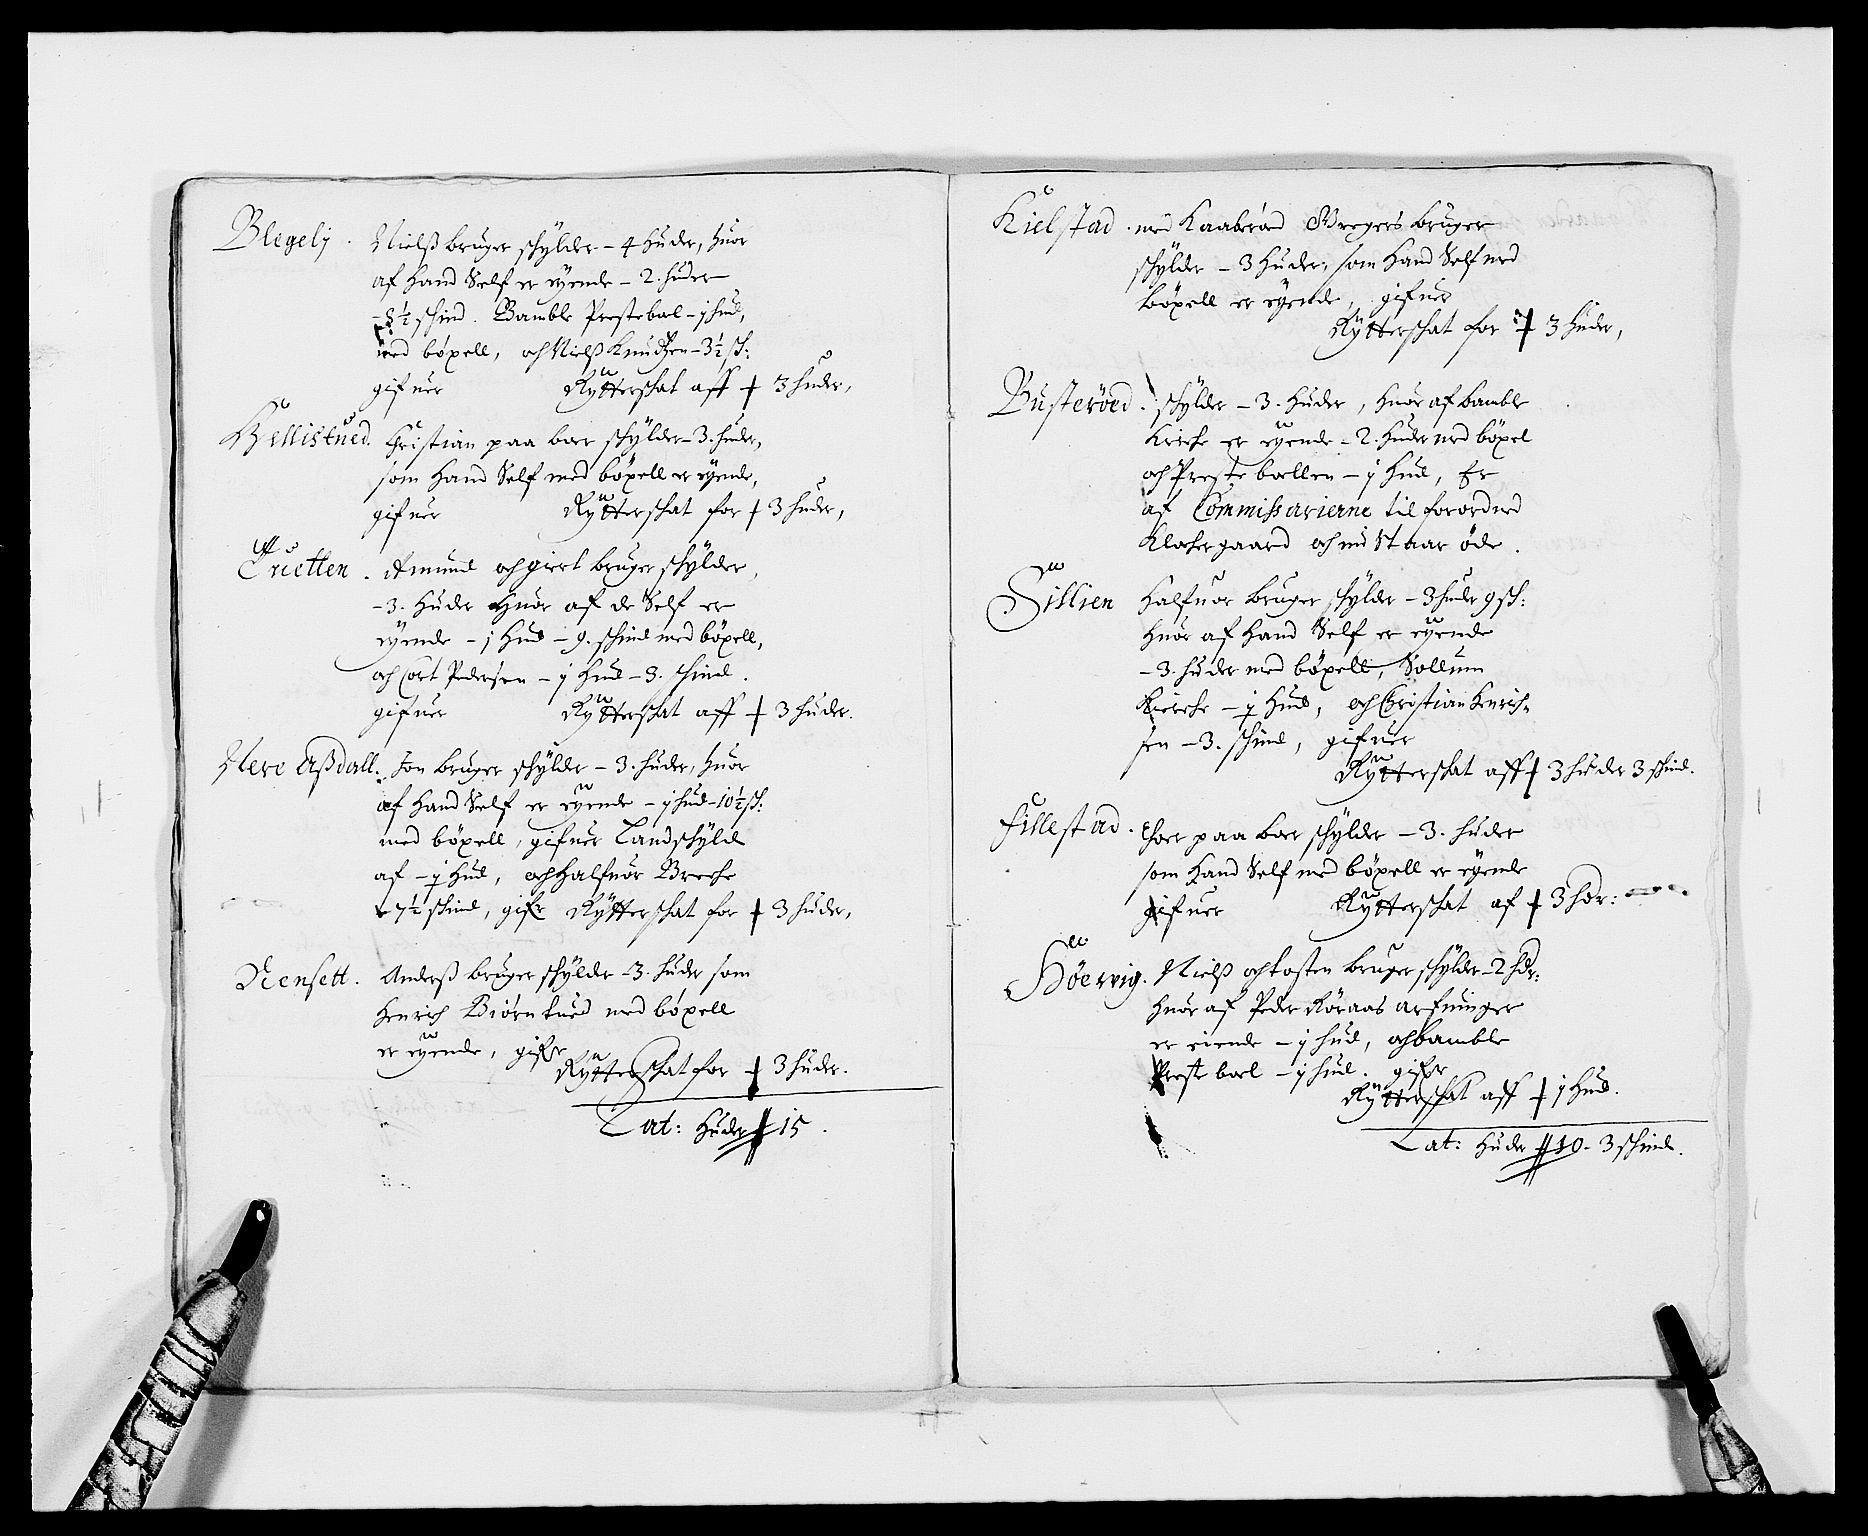 Blegelj . Nielß bruger schylder – 4 huder, huor
af hand Self er eyende – 2. huder
– 8½ schind. Bamble Prestebol – j hud,
med böxell, och Nielß Knudzen – 3½ sch:
gifuer Rytterschat aff 3 huder,
Bellistued. Christian paa boer schylder – 3. huder,
som hand Self med böxell er eyende,
gifuer Rytterschat for 3 huder,
Tuetten . Amund och giert bruger schylder,
– 3. huder huor af de Self er
eyende – j hud – 9. schind med böxell,
och Cort Pedersen – j hud – 3. schind.
gifuer Rytterschat aff 3 huder.
Nere Aßdall. Jon bruger schylder – 3. huder, huor
af hand Self er eyende – j hud – 10½ sch:
med böxell, gifuer Landschyld
af – j hud, och Halfuor Breche
7½ schind, gifr Rytterschat for 3 huder,
Rensett. Anderß bruger schylder – 3. huder som
Henrich Biörntued med böxell
er eyende, gifr
Rytterschat for 3 huder.
Lat: huder 15.
Kielstad . med Kaaberød Gregers bruger
schylder – 3 huder, som hand Self med
böxell er eyende, gifuer
Rytterschat for 3 huder,
Busteröed . schylder – 3. huder, huor af bamble
Kirche er eyende – 2. huder med böxel
och Preste bollen – j hud, Er
af Commissarierne til forordned
Klocher gaard och nu staar öde.
Sillien Halfuor bruger schylder – 3 huder 9 sch:
huor af hand Self er eyende
– 3. huder med böxell, Sollum
Kierche – j hud, och Christian Henrich-
sen – 3. schind, gifuer
Rytterschat aff 3 huder 3 schind.
Fillestad . Thor paa boer schylder – 3. huder
som hand Self med böxell er eyende
gifuer Rytterschat af 3 hdr:
Höervig. Nielß och tosten bruger schylder – 2 hdr:
huor af Peder Röraas arfuinger
er eiende – j hud, och bamble
Preste boel – j hud. gifr
Rytterschat aff j hud.
Lat: huder 10 – 3 schind.